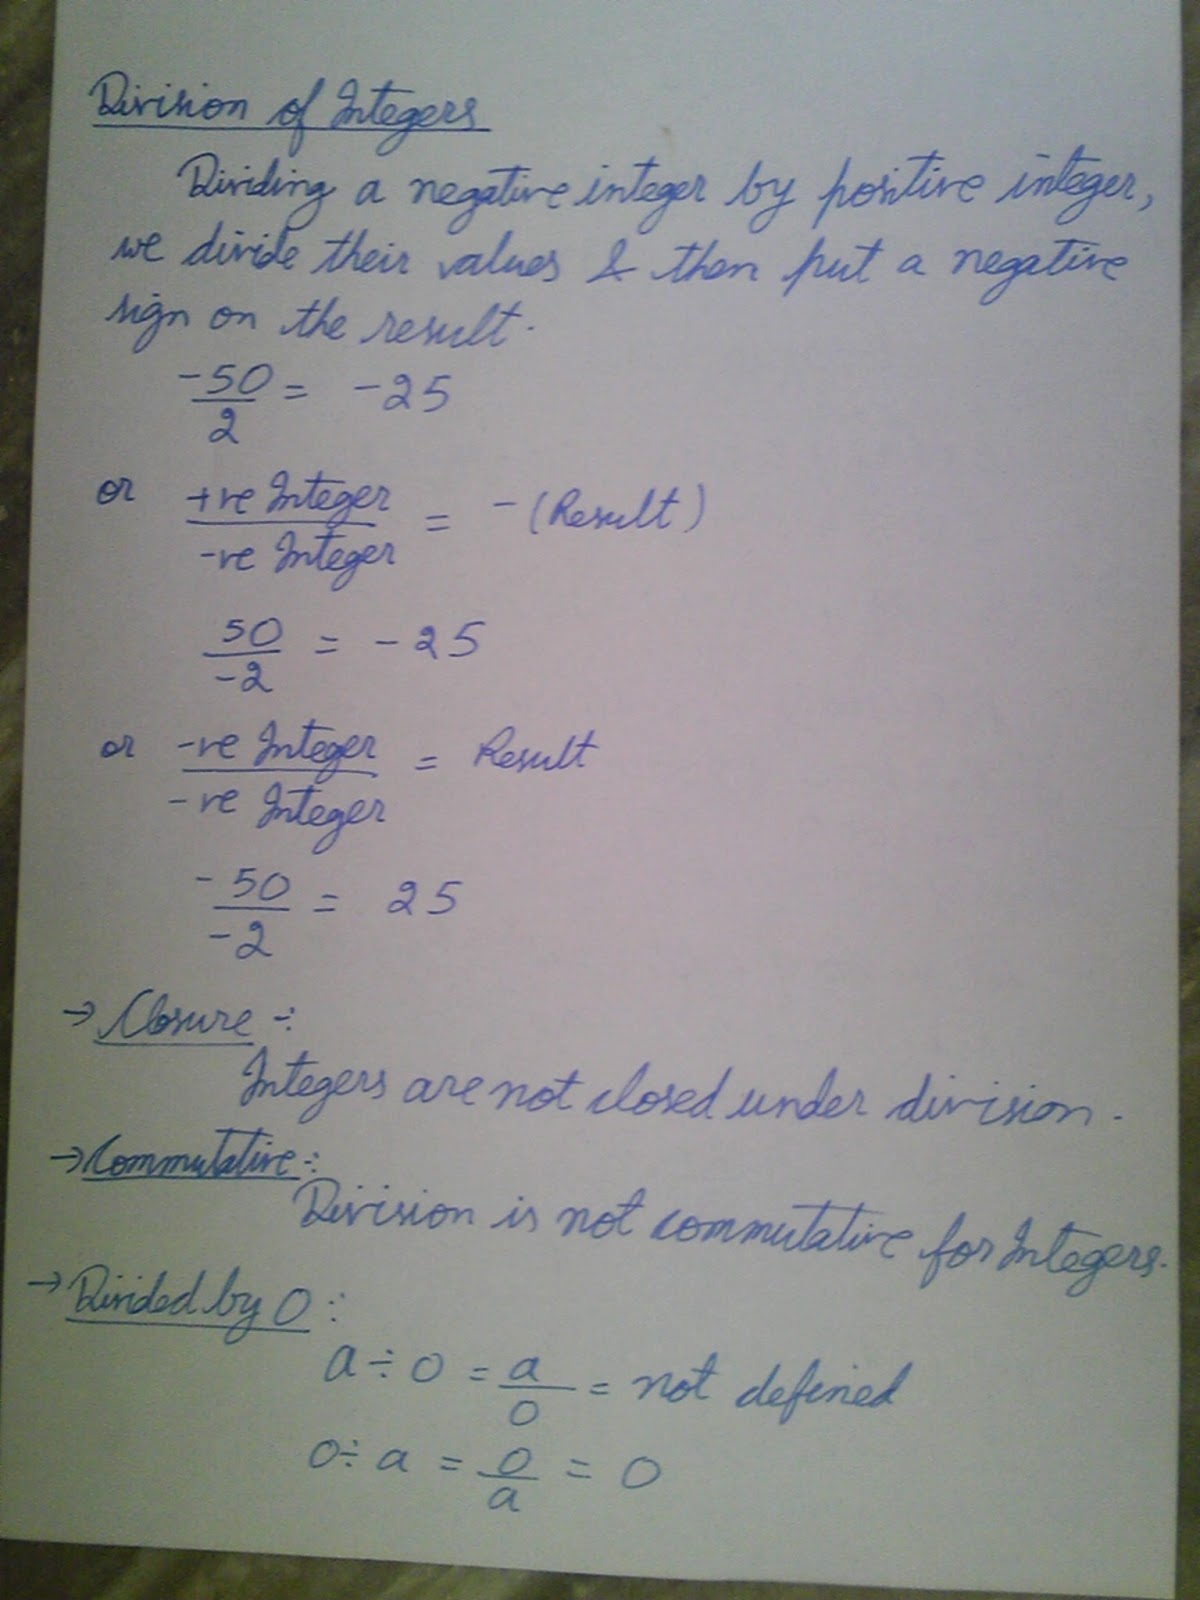 Division of Integers
Dividing a negative integer by positive integer,
we divide their values & then put a negative
sign on the result.
-50/2 = -25
or +ve Integer/-ve Integer = -(Result)
50/-2 = -25
or -ve Integer/-ve Integer = Result
-50/-2 = 25
→ Closure :-
Integers are not closed under division.
→ Commutative :-
Division is not commutative for Integers.
→ Divided by 0 :-
a ÷ 0 = a/0 = not defined
0 ÷ a = 0/a = 0